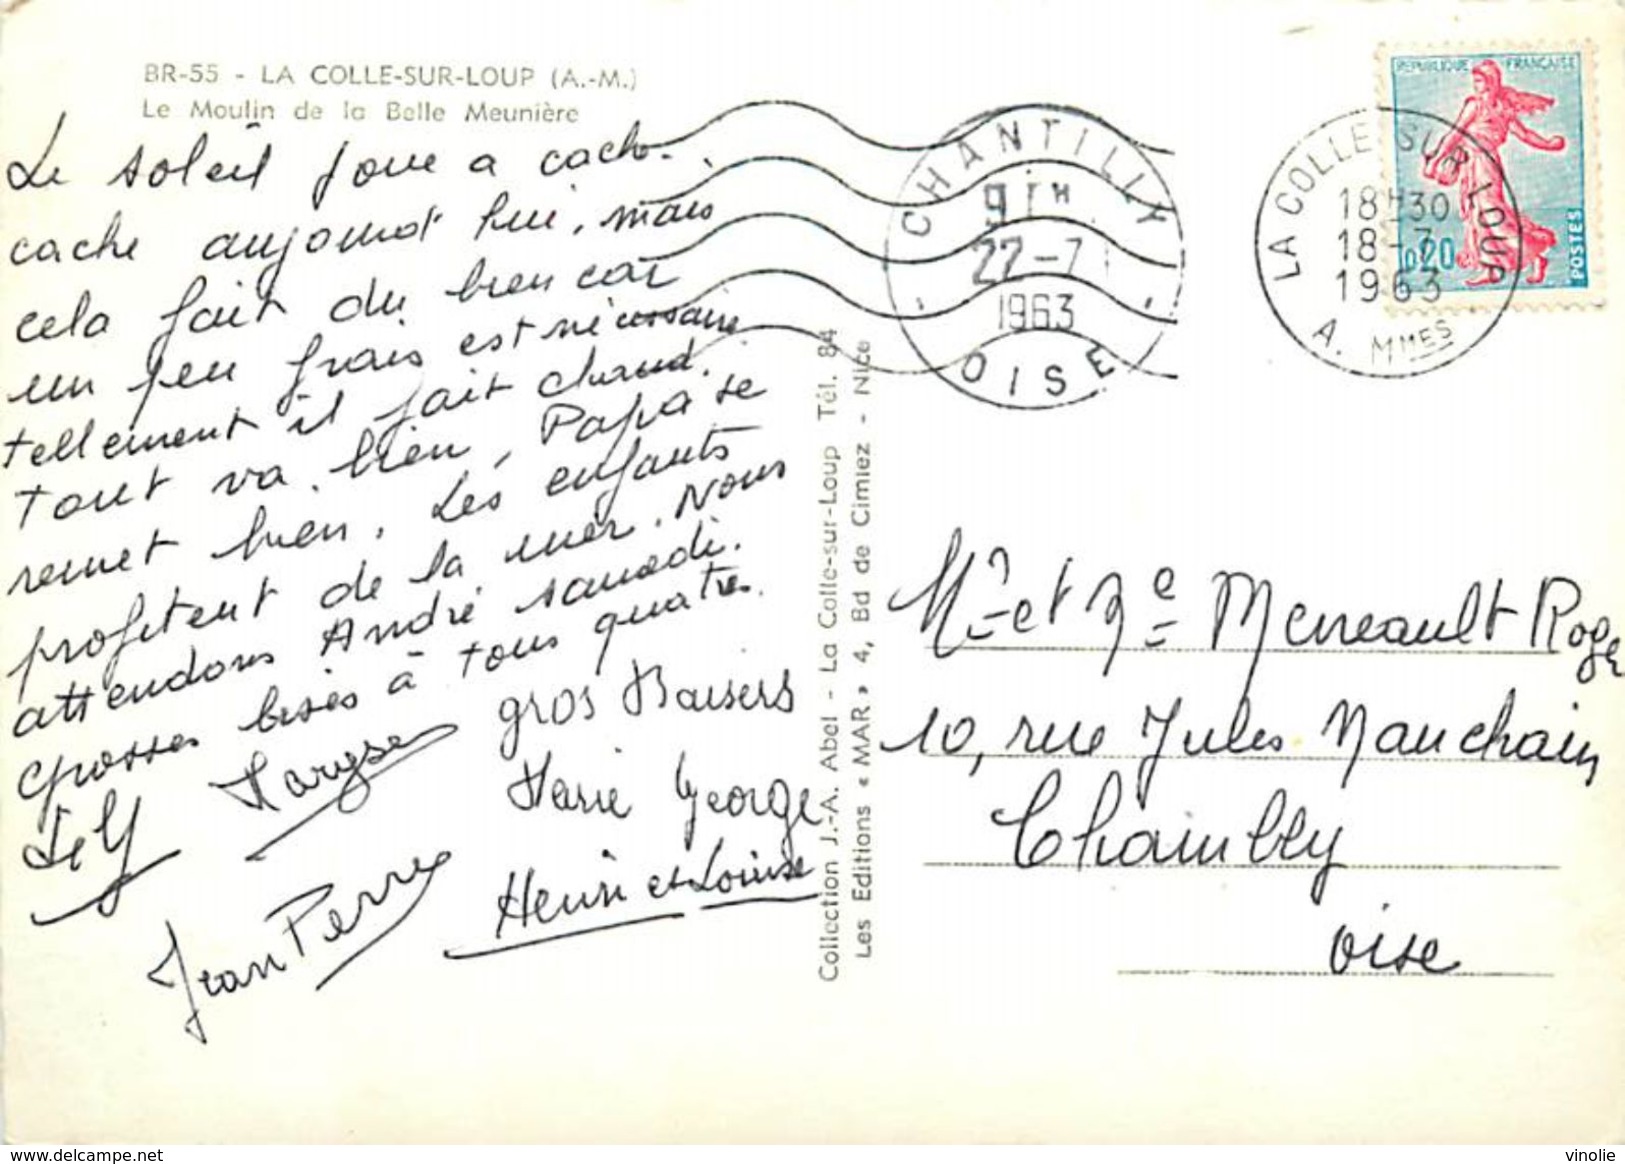 BR-55 - LA COLLE-SUR-LOUP (A.-M.)
Le Moulin de la Belle Meunière
Le soleil joue a cache.
cache aujourd'hui, mais
cela fait du bien car
un peu frais est nécessaire
tellement il fait chaud.
Tout va bien, Papa se
remet bien. Les enfants
profitent de la mer. Nous
attendons André samedi.
Grosses bises à tous quatre.
Maryse
gros Baisers
Marie George
Henri et Louise
Jean Pierre
Collection J.-A. Abel - La Colle-sur-Loup Tél. 84
Les Editions « MAR » 4, Bd de Cimiez - Nice
CHANTILLY
22-7
1963
OISE
LA COLLE SUR LOUP
18H30
18-7
1963
A. MMES
REPUBLIQUE FRANÇAISE
0,20
POSTES
Mr et Me Meneault Roger
10, rue Jules Nauchain
Chambly
Oise
www.delcampe.net
vinolie